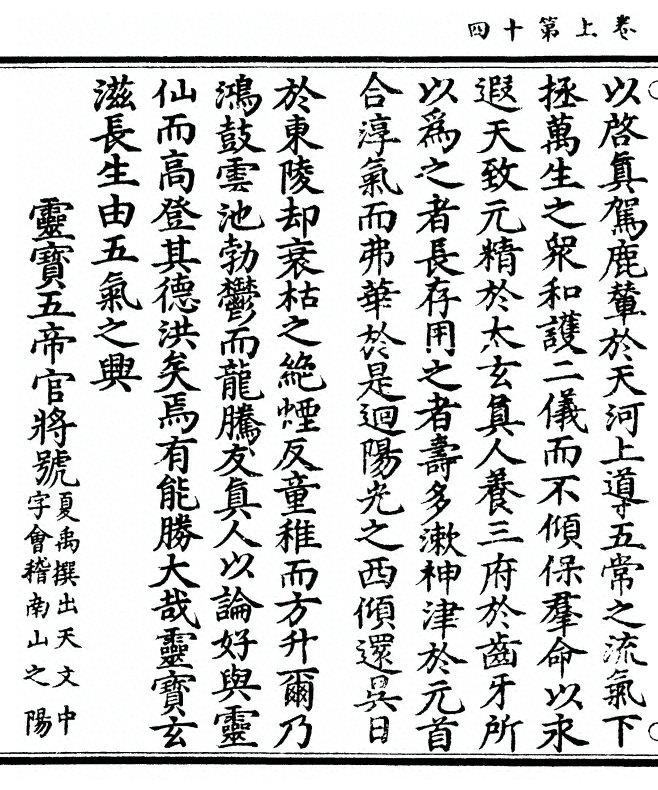 卷上第十四
以啓眞駕鹿輦於天河上導五常之流氣下
拯萬生之衆和護二儀而不傾保羣命以永
遐天致元精於太玄眞人養三府於齒牙所
以爲之者長存用之者壽多漱神津於元首
合淳氣而弗華於是迴陽光之西傾還異日
於東陵却衰枯之絶煙反童稚而方升爾乃
鴻鼓雲池勃鬱而龍騰友眞人以論好與靈
仙而高登其德洪矣焉有能勝大哉靈寶玄
滋長生由五氣之興
靈寶五帝官將號夏禹撰出天文中
字會稽南山之陽